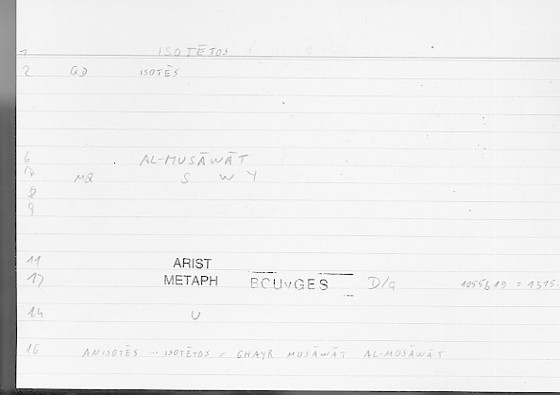 1 ISOTĒTOS
2 GD ISOTĒS
6 AL-MUSĀWĀT
7 MQ S W Y
8
9
11 ARIST
METAPH BOUYGES D/G 1055b19 = 1315.
14 U
16 ANISOTĒS ISOTĒTOS GHAYR MUSĀWĀT AL-MUSĀWĀT